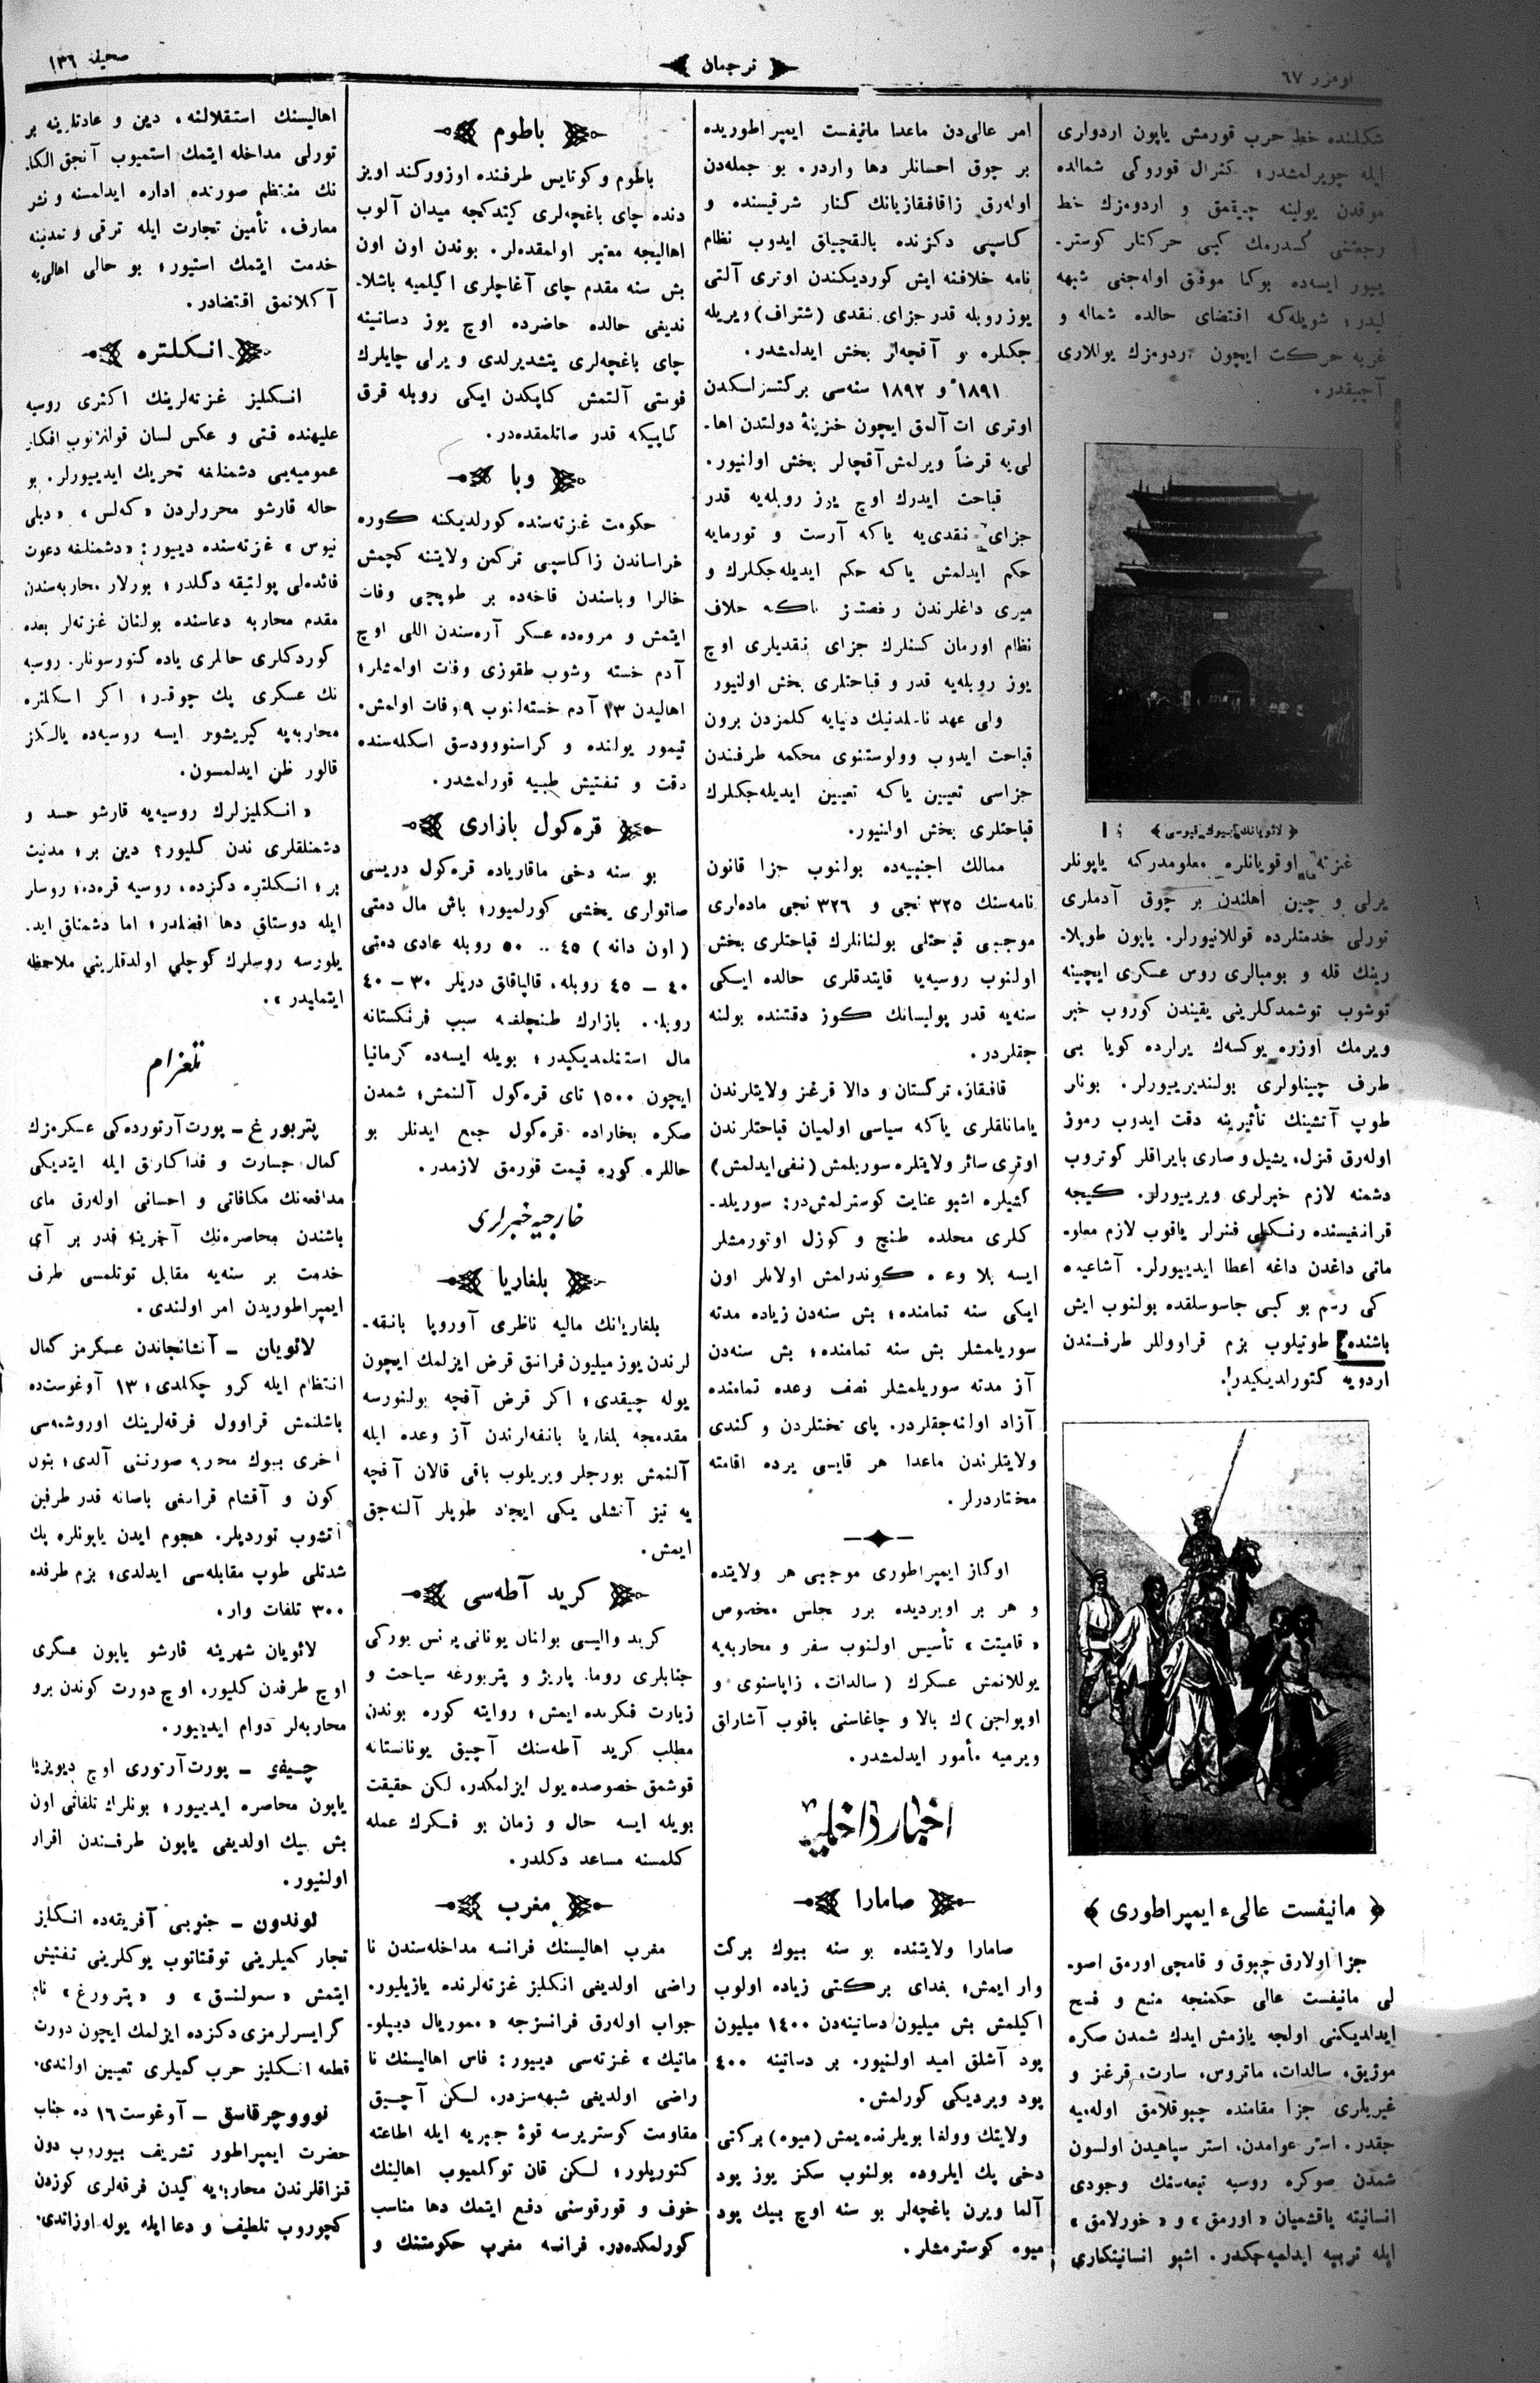 نومرو ٦٧
ترجمان
صحیفه ١٣٦
شکلنده خط حرب قورمش یاپون اردولری
ایله چویرلمشدر؛ کنرال قوروپکی شمالده
موقدن یولینه چیقمق و اردومزك خط
رجعتنی کسدرمك کبی حرکتلر کوستر-
ییور ایسه‌ده بوکا موفق اوله‌جنی شبهه
لیدر؛ شویله‌که اقتضای حالده شماله و
غربه حرکت ایچون اردومزك یوللاری
آچیقدر.
﴿ لائویانك بیوك قپوسی ﴾
غزته اوقویانلره معلومدرکه یاپونلر
یرلی و چین اهلندن بر چوق آدملری
تورلی خدمتلرده قوللانیورلر. یاپون طوپلا-
رینك قله و بومبالری روس عسکری ایچینه
توشوب توشمدکلرینی یقیندن کوروب خبر
ویرمك اوزره یوکسه‌ك یرلرده کویا بی
طرف چینلولری بولندیرییورلر. بونلر
طوپ آتشینك تأثیرینه دقت ایدوب رموز
اوله‌رق قزل، یشیل و صاری بایراقلر کوتروب
دشمنه لازم خبرلری ویرییورلر. کیجه
قرانغیسنده رنکلی فنرلر یاقوب لازم معلو-
ماتی داغدن داغه اعطا ایدییورلر. آشاغیده
کی رسم بو کبی جاسوسلقده بولنوب ایش
باشنده طوتیلوب بزم قراوللر طرفندن
اردویه کتورلدیکیدر.
﴿ مانیفست عالیٔ ایمپراطوری ﴾
جزا اولارق چبوق و قامچی اورمق اصو-
لی مانیفست عالی حکمنجه منع و فسخ
ایدلدیکنی اولجه یازمش ایدك شمدن صکره
موژیق، سالدات، ماتروس، سارت، قرغز و
غیریلری جزا مقامنده چبوقلامق اوله‌میه
جقدر. استر عوامدن، استر سپاهیدن اولسون
شمدن صوکره روسیه تبعه‌سنك وجودی
انسانیته یاقشمیان «اورمق» و «خورلامق»
ایله تربیه ایدلمیه‌جکدر. اشبو انسانیتکاری
امر عالی‌دن ماعدا مانیفست ایمپراطوریده
بر چوق احسانلر دها واردر. بو جمله‌دن
اوله‌رق زاقافقازیانك کنار شرقیسنده و
کاسپی دکزنده بالقچیلق ایدوب نظام
نامه خلافنه ایش کوردیکندن اوتری آلتی
یوز روبله قدر جزای نقدی (شتراف) ویریله
جکلره و آقچه‌لر بخش ایدلمشدر.
١٨٩١ و ١٨٩٢ سنه‌سی برکتسزلسکدن
اوتری ات آلمق ایچون خزینهٔ دولتدن اها-
لی‌یه قرضاً ویرلمش آقچالر بخش اولنیور.
قباحت ایدرك اوچ یوز روبله‌یه قدر
جزای نقدی‌یه یاکه آرست و تورمایه
حکم ایدلمش یاکه حکم ایدیله‌جکلرك و
میری داغلرندن رخصتسز یاکه خلاف
نظام اورمان کسنلرك جزای نقدیلری اوچ
یوز روبله‌یه قدر و قباحتلری بخش اولنیور
ولی عهد نامدنیك دنیایه کلمزدن برون
قباحت ایدوب وولوستنوی محکمه طرفندن
جزاسی تعیین یاکه تعیین ایدیله‌جکلرك
قباحتلری بخش اولنیور.
ممالك اجنبیه‌ده بولنوب جزا قانون
نامه‌سنك ٣٢٥ نجی و ٣٢٦ نجی ماده‌لری
موجبی قباحتلی بولنانلرك قباحتلری بخش
اولنوب روسیه‌یا قایتدقلری حالده ایسکی
سنه‌یه قدر پولیسانك کوز دقتنده بولنه
جقلردر.
قافقاز، ترکستان و دالا قرغز ولایتلرندن
یامانلقلری یاکه سیاسی اولمیان قباحتلرندن
اوتری سائر ولایتلره سوریلمش (نفی ایدلمش)
کشیلره اشبو عنایت کوسترلمش‌در: سوریلد-
کلری محلده طنچ و کوزل اوتورمشلر
ایسه بلا وعده کوندرلمش اولانلر اون
ایکی سنه تمامنده؛ بش سنه‌دن زیاده مدته
سوریلمشلر بش سنه تمامنده؛ بش سنه‌دن
آز مدته سوریلمشلر نصف وعده تمامنده
آزاد اولنه‌جقلردر. پای تختلردن و کندی
ولایتلرندن ماعدا هر قایسی یرده اقامته
مختاردرلر.
اوکاز ایمپراطوری موجبی هر ولایتده
و هر بر اویزدیده برر مجلس مخصوص
«قامیتت» تأسیس اولنوب سفر و محاربه‌یه
یوللانمش عسکرك (سالدات، زاپاسنوی و
اوپولچن)ك بالا و چاغاسنی باقوب آشاراق
ویرمیه مأمور ایدلمشدر.
اخبار داخلیه
صامارا
صامارا ولایتنده بو سنه بیوك برکت
وار ایمش؛ بغدای برکتی زیاده اولوب
اکیلمش بش میلیون دساتینه‌دن ١٤٠٠ میلیون
پود آشلق امید اولنیور. بر دساتینه ٤٠٠
پود ویردیکی کورلمش.
ولایتك وولغا بویلرنده یمش (میوه) برکتی
دخی پك ایلروده بولنوب سکز یوز پود
آلما ویرن باغچه‌لر بو سنه اوچ بیك پود
میوه کوسترمشلر.
باطوم
باطوم وکوتایس طرفنده اوزورکند اویز
دنده چای باغچه‌لری کیتدکجه میدان آلوب
اهالیجه معتبر اولمقده‌لر. بوندن اون اون
بش سنه مقدم چای آغاچلری اکیلمیه باشلا-
ندیغی حالده حاضرده اوچ یوز دساتینه
چای باغچه‌لری یتشدیرلدی و یرلی چایلرك
فونتی آلتمش کاپکدن ایکی روبله قرق
کاپیکه قدر صاتلمقده‌در.
وبا
حکومت غزته‌سنده کورلدیکنه کوره
خراساندن زاکاسپی ترکمن ولایتنه کچمش
خالرا وباسندن قاخه‌ده بر طوپچی وفات
ایتمش و مروه‌ده عسکر آره‌سندن اللی اوچ
آدم خسته وشوب طقوزی وفات اولمشلر؛
اهالیدن ١٣ آدم خسته‌لنوب ٩ وفات اولمش.
تیمور یولنده و کراسنووودسق اسکله‌سنده
دقت و تفتیش طبیه قورلمشدر.
قره کول بازاری
بو سنه دخی ماقاریاده قره‌کول دریسی
صاتولری یخشی کورلمیور؛ باش مال دمتی
(اون دانه) ٤٥ .. ٥٠ روبله عادی دمتی
٤٠ – ٤٥ روبله، قالپاقلق دریلر ٣٠ – ٤٠
روبله. بازارك طنچلغنه سبب فرنکستانه
مال استنلمدیکیدر؛ بویله ایسه‌ده کرمانیا
ایچون ١٥٠٠ تای قره‌کول آلنمش؛ شمدن
صکره بخاراده قره‌کول جمع ایدنلر بو
حاللره کوره قیمت قورمق لازمدر.
خارجیه خبرلری
بلغاریا
بلغاریانك مالیه ناظری آوروپا بانقه-
لرندن یوز میلیون فرانق قرض ایزلمك ایچون
یوله چیقدی؛ اکر قرض آقچه بولنورسه
مقدمجه بلغاریا بانقه‌لرندن آز وعده ایله
آلنمش بورجلر ویریلوب باقی قالان آقچه
یه تیز آتشلی یکی ایجاد طوپلر آلنه‌جق
ایمش.
کرید آطه‌سی
کرید والیسی بولنان یونانی پرنس یورکی
جنابلری روما، پاریژ و پتربورغه سیاحت و
زیارت فکرنده ایمش؛ روایته کوره بوندن
مطلب کرید آطه‌سنك آچیق یونانستانه
قوشمق خصوصده یول ایزلمکدر، لکن حقیقت
بویله ایسه حال و زمان بو فکرك عمله
کلمسنه مساعد دکلدر.
مغرب
مغرب اهالیسنك فرانسه مداخله‌سندن نا
راضی اولدیغی انکلیز غزته‌لرنده یازیلیور.
جواب اوله‌رق فرانسزجه «مموریال دیپلو-
ماتیك» غزته‌سی دییور: فاس اهالیسنك نا
راضی اولدیغی شبهه‌سزدر، لکن آچیق
مقاومت کوستریرسه قوهٔ جبریه ایله اطاعته
کتوریلور؛ لکن قان توکلمیوب اهالینك
خوف و قورقوسنی دفع ایتمك دها مناسب
کورلمکده‌در. فرانسه مغرب حکومتنك و
اهالیسنك استقلالنه، دین و عادتلرینه بر
تورلی مداخله ایتمك استمیوب آنجق الکا-
نك منتظم صورنده اداره ایدلمسنه و نشر
معارف، تأمین تجارت ایله ترقی و تمدنینه
خدمت ایتمك استیور؛ بو حالی اهالی‌یه
آکلانمق اقتضادر.
انکلتره
انکلیز غزته‌لرینك اکثری روسیه
علیهنده قتی و عکس لسان قوللانوب افکار
عمومیه‌یی دشمنلغه تحریك ایدییورلر. بو
حاله قارشو محررلردن «که‌لس» «دیلی
نیوس» غزته‌سنده دییور: «دشمنلغه دعوت
فائده‌لی پولتیقه دکلدر؛ بورلار محاربه‌سندن
مقدم محاربه دعاسنده بولنان غزته‌لر بعده
کوردکلری حالمری یاده کتورسونلر. روسیه
نك عسکری پك چوقدر؛ اکر انکلتره
محاربه‌یه کیریشور ایسه روسیه‌ده یالکز
قالور ظن ایدلمسون.
«انکلیزلرك روسیه‌یه قارشو حسد و
دشمنلقلری ندن کلیور؟ دین بر؛ مدنیت
بر؛ انکلتره دکزده، روسیه قره‌ده؛ روسلر
ایله دوستلق دها افضلدر؛ اما دشمنلق اید-
یلورسه روسلرك کوچلی اولدقلرینی ملاحظه
ایتملیدر».
تلغرام
پتربورغ – پورت آرتورده‌کی عسکرمزك
کمال جسارت و فداکارلق ایله ایتدیکی
مدافعه‌نك مکافاتی و احسانی اوله‌رق مای
باشندن محاصره‌نك آخرینه قدر بر آی
خدمت بر سنه‌یه مقابل توتلمسی طرف
ایمپراطوریدن امر اولندی.
لائویان – آنشانجاندن عسکرمز کمال
انتظام ایله کرو چکلدی؛ ١٣ آوغوست‌ده
باشلنمش قراوول فرقه‌لرینك اوروشمه‌سی
آخری بیوك محاربه صورتنی آلدی؛ بتون
کون و آقشام قرانغی باصانه قدر طرفین
آتشوب توردیلر. هجوم ایدن یاپونلره پك
شدتلی طوپ مقابله‌سی ایدلدی؛ بزم طرفده
٣٠٠ تلفات وار.
لائویان شهرینه قارشو یاپون عسکری
اوچ طرفدن کلیور، اوچ دورت کوندن برو
محاربه‌لر دوام ایدییور.
چیفو – پورت آرتوری اوچ دیویزیا
یاپون محاصره ایدییور؛ بونلرك تلفاتی اون
بش بیك اولدیغی یاپون طرفندن اقرار
اولنیور.
لوندون – جنوبی آفریقه‌ده انکلیز
تجار کمیلرینی توقتاتوب یوکلرینی تفتیش
ایتمش «سمولنسق» و «پتربورغ» نام
کرایسرلرمزی دکزده ایزلمك ایچون دورت
قطعه انکلیز حرب کمیلری تعیین اولندی.
نووچرقاسق – آوغوست ١٦ ده جناب
حضرت ایمپراطور تشریف بیوروب دون
قزاقلرندن محاربه‌یه کیدن فرقه‌لری کوزدن
کچوروب تلطیف و دعا ایله یوله اوزاتدی.